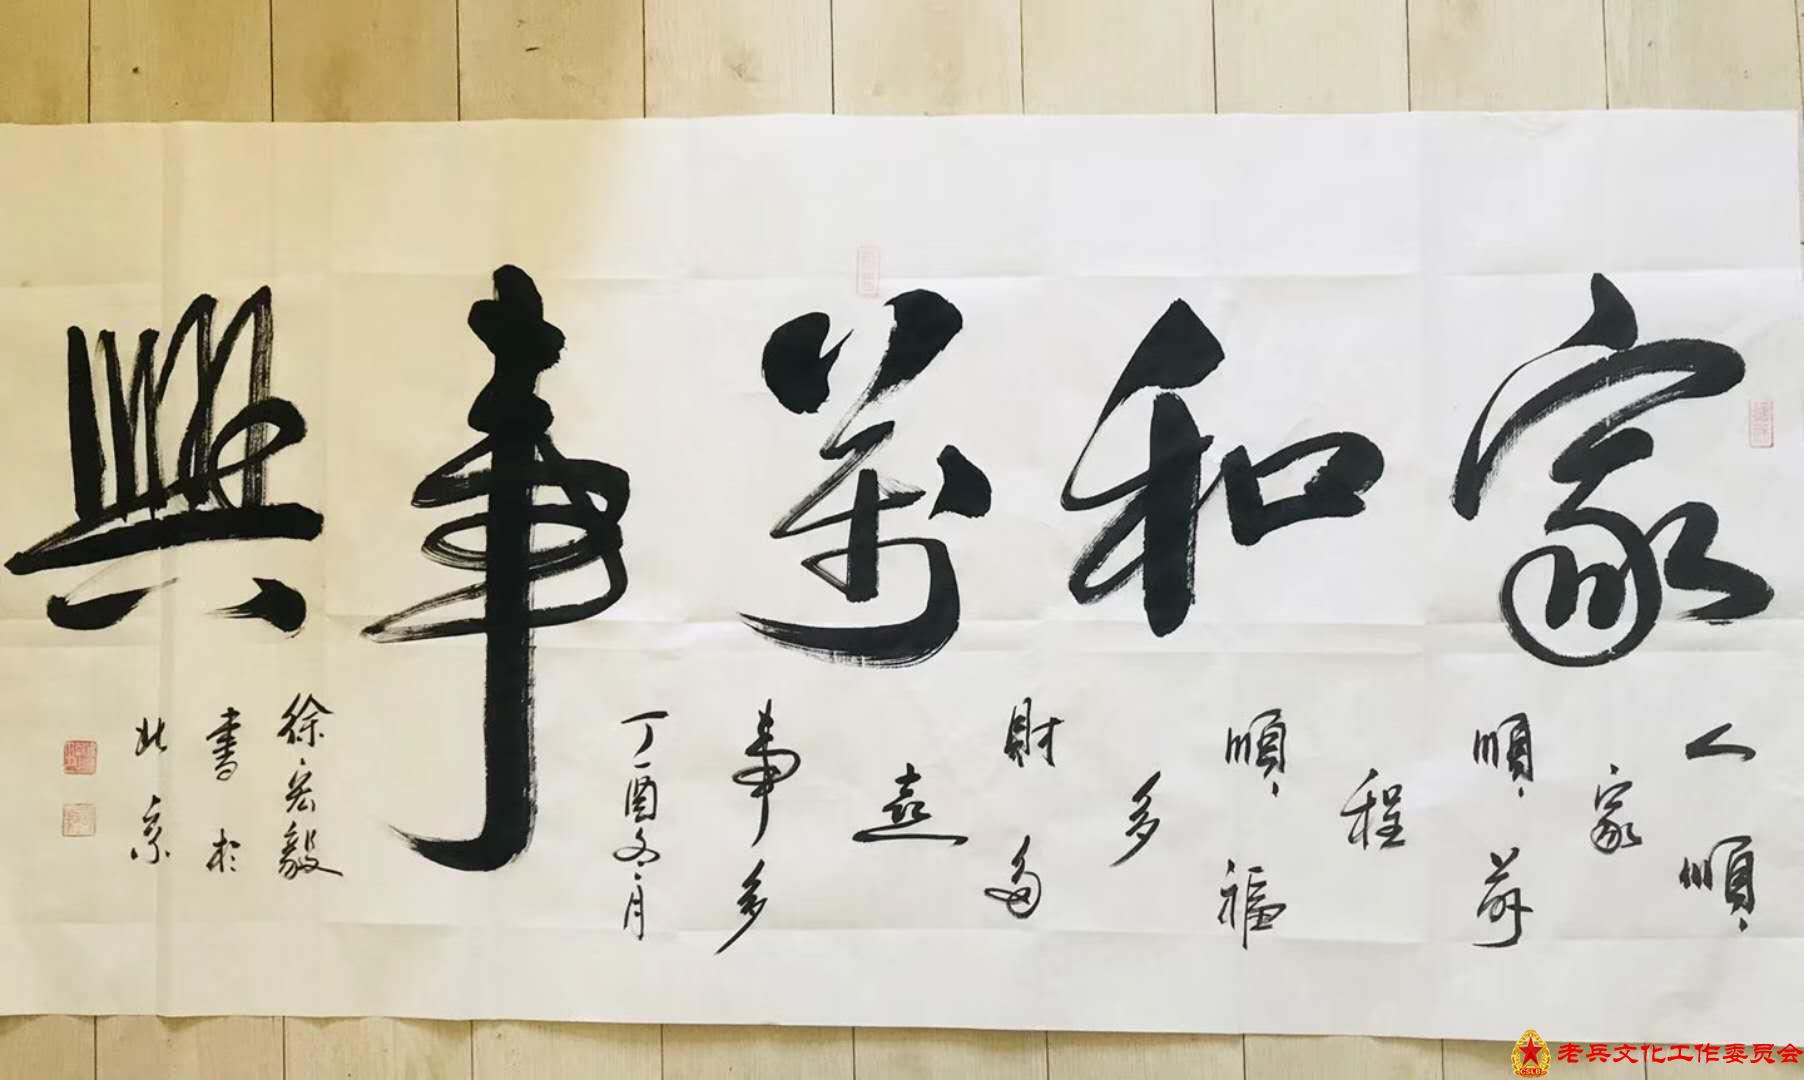 家和萬事興
人順、
家
順、前
程
順、福
多
財多
喜
事多
丁酉冬月
徐宏毅
書於
北京
老兵文化工作委员会
CSLB